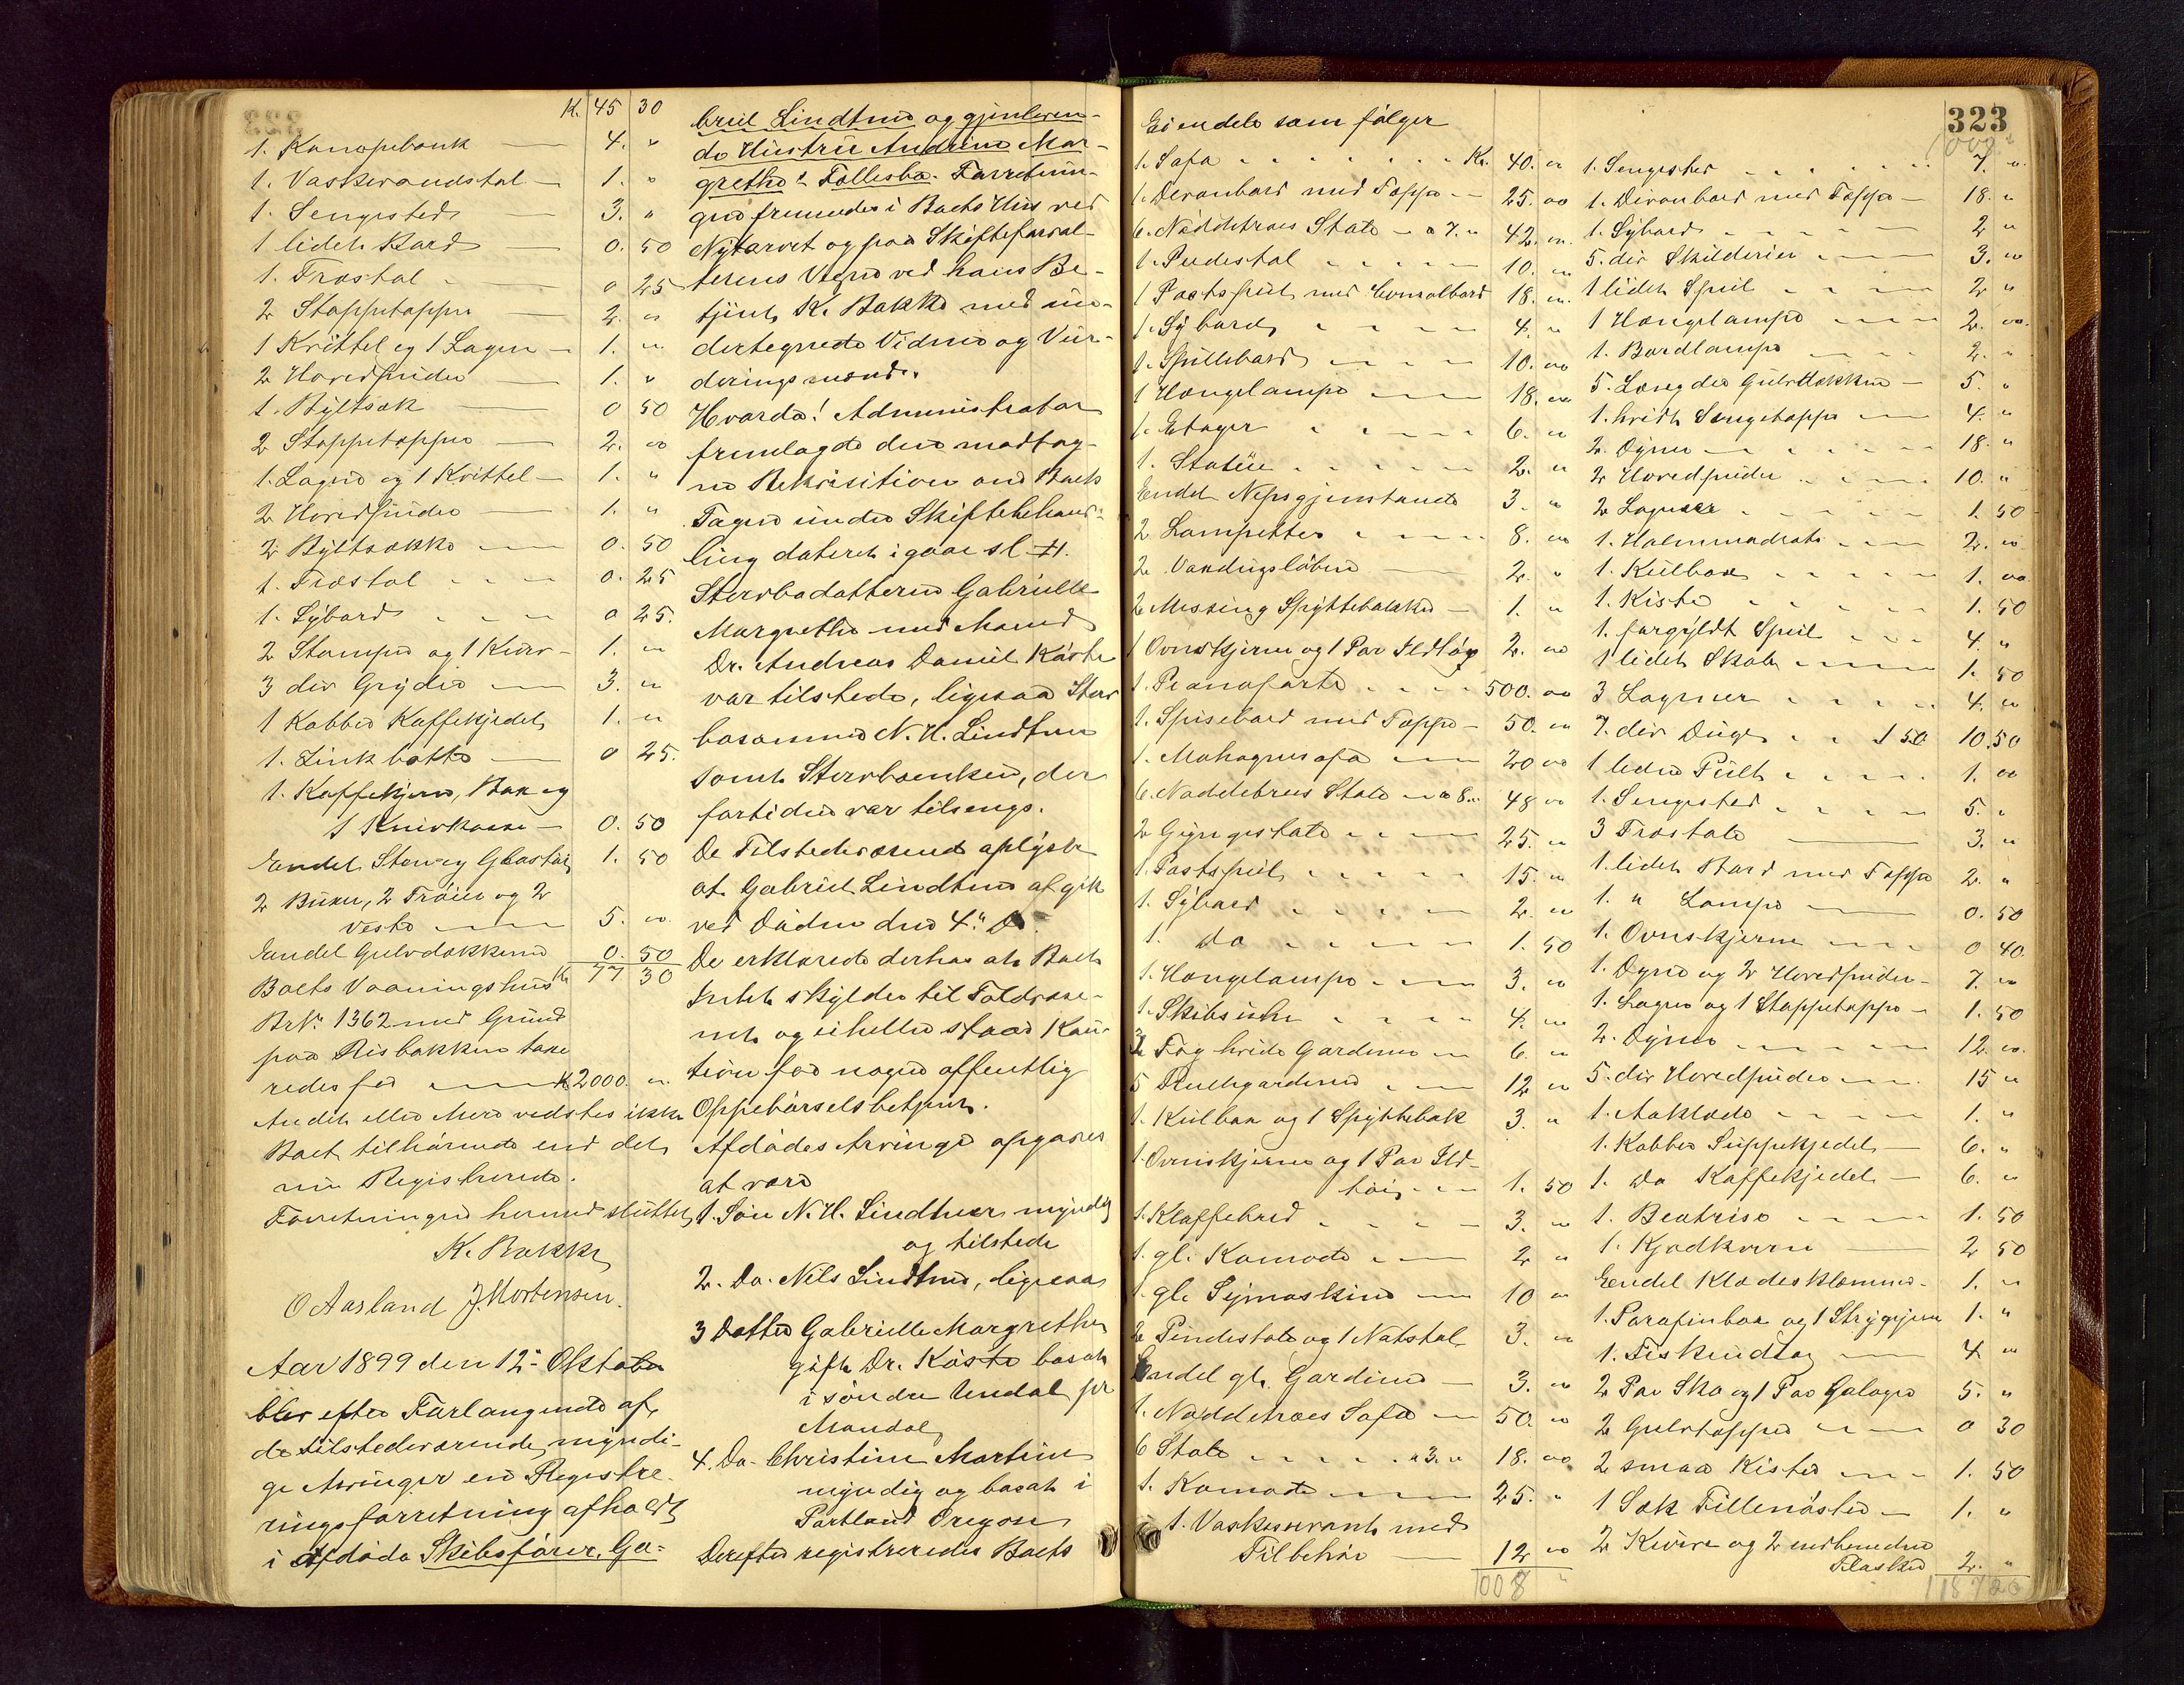 K. 45 30
1. Kanapebænk 4. "
1. Vaskevandstol 1. "
1. Sengested 3. "
1 lidet Bord 0. 50
1. Træstol 0 25
2 Stoppetæpper 2. "
1 Krittel og 1 Lagen 1. "
2 Hovedpuder 1. "
1. Byltsæk 0 50
2 Stoppetæpper 2. "
1. Lagen og 1 Krittel 1. "
2 Hovedpuder 1. "
2 Byltsække 0. 50
1. Træstol 0. 25
1. Sybord 0 25.
2 Stamper og 1 Kurv 1. "
3 div Gryder 3. "
1 Kobber Kaffekjedel 1. "
1. Zinkbøtte 0 25.
1. Kaffekjern, Bax og
1 Knivkasse 0. 50
Endel Sten og Glastøi 1. 50
2 Buxer, 2 Trøier og 2
Veste 5. "
Endel Gulvdækkener 0. 50
K. 77 30
Boets Vaaningshus
BrNr. 1362 med Grund
paa Risbakken taxe
redes for K 2000. "
Andet eller Mere vedstes ikke
Boet tilhørende end det
nu Registrerede.
Forretningen hermed sluttet
K. Bakke
O Aarland J. Mortensen.
Aar 1899 den 12- Oktober
blev efter Forlangende af
de tilstedeværende myndi-
ge Arvinger en Registre-
ringsforretning afholdt
i afdøde Skibsfører, Ga-
briel Lindtner og gjenleven-
de Hustru Andrine Mar-
grethe f. Follesbø. Forretnin-
gen fremmedes i Boets Hus ved
Nytorvet og paa Skifteforval-
terens Vegne ved hans Be-
tjent K. Bakke med un-
dertegnede Vidner og Vur-
deringsmænd.
Hvorda! Administrator
fremlagde den modtag-
ne Rekvisition om Boets
Tagen under Skiftebehand-
ling dateret igaar sl. H.
Stervbodatteren Gabrielle
Margrethe med Mand
Dr. Andreas Daniel Kørte
var tilstede, ligesaa Sterv
bosønnen N. H. Lindtner
samt Stervboenken, der
fortiden var tilsengs.
De Tilstedeværende oplyste
at Gabriel Lindtner afgik
ved Døden den 4" ds.
De erklærede derhos at Boet
Intet skylder til Toldvæse-
net og ei heller staar Kau-
tion for nogen offentlig
Oppebørselsbetjent.
Afdødes Arvinger opgaves
at være
1. Søn N. H. Lindtner myndig
og tilstede
2. Do. Nils Lindtner, ligesaa
3 Datter Gabrielle Margrethe
gift Dr. Kørte bosat
i søndre Undal pr
Mandal
4. Do. Christine Martine
myndig og bosat i
Portland Oregon
Derefter registreredes Boets
Eiendele som følger
1. Sofa Kr. 40. "
1. Divanbord med Tæppe 25. oo
6. Nøddetræes Stole a 7. " 42. "
1. Pidestal 10. "
1 Postspeil med Consolbord 18. "
1. Sybord 4. "
1. Spillebord 10. oo
1 Hængelampe 18. oo
1. Etager 6. "
1. Statue 2. "
Endel Nipsgjenstande 3. "
2 Lampetter 8. oo
2 Vandingsløbere 2. "
2 Messing Spyttebakker 1. "
1 Ovnskjerm og 1 Par Ildtøi 2. oo
1. Pianoforte 500. oo
1. Spisebord med Tæppe 50. "
1. Mahognysofa 20 oo
6. Nøddetræes Stole a 8. " 48 oo
2 Gyngestole 25. "
1. Postspeil 15. "
1. Sybord 2. "
1. do 1. 50
1. Hængelampe 3. "
1. Skibsuhr 4. "
3 Fag hvide Gardiner 6. "
5 Rullegardiner 12 "
1. Kulbax og 1 Spyttebak 3. "
1. Ovnskjerm og 1 Par Ild-
tøi 1. 50
1. Klaffebord 3. "
1. gl. Komode 2 "
1. gl. Symaskine 10 "
2 Pindestole og 1 Natstol 3. "
Endel gl. Gardiner 3. "
1. Nøddetræes Sofa 50. "
6 Stole a 3. " 18. oo
1. Komode 25. "
1. Vaskeservant med
Tilbehør 12 oo
1008 "
323
1008 "
1. Sengested 7. "
1. Divanbord med Tæppe 18. "
1. Sybord 2 "
5. div Skilderier 3. "
1 lidet Speil 2 "
1 Hængelampe 2. oo.
1. Bordlampe 2. "
5. Længder Gulvdækken 5. "
1. hvidt Sengetæppe 4. "
2. Dyner 18. "
2 Hovedpuder 10. "
2 Lagener 1. 50
1. Halmmadrats 2. "
1. Kulbox 1. oo
1. Kiste 1. 50
1. forgyldt Speil 4. "
1 lidet Skab 1. 50
3 Lagener 4. "
7. div Duge 1 50 10. 50
1 liden Pult 1. oo
1. Sengested 5. "
3 Træstole 3. "
1. lidet Bord med Tæppe 2. "
1. " Lampe 0. 50
1. Ovnskjerm 0 40.
1. Dyne og 2 Hovedpuder 7. "
1. Lagen og 1 Stoppetæppe 1. 50
2. Dyner 12. oo.
5. div Hovedpuder 15 "
1. Aaklæde 1. "
1. Kobber Suppekjedel 6. "
1. Do Kaffekjedel 6. "
1. Beatrise 1. 50
1. Kjødkværn 2 50
Endel Klædesklemmer 1. "
1. Parafinbox og 1 Strygejern 1. "
1. Fiskeudtøi 4 "
2 Par Sko og 1 Par Galoger 5. "
2 Gulvtæpper 0 30
2 smaa Kister 1. 50
1 Sæk Fillenøster 1. "
2 Kurve og 2 indbundne
Flasker 2. "
1187 20